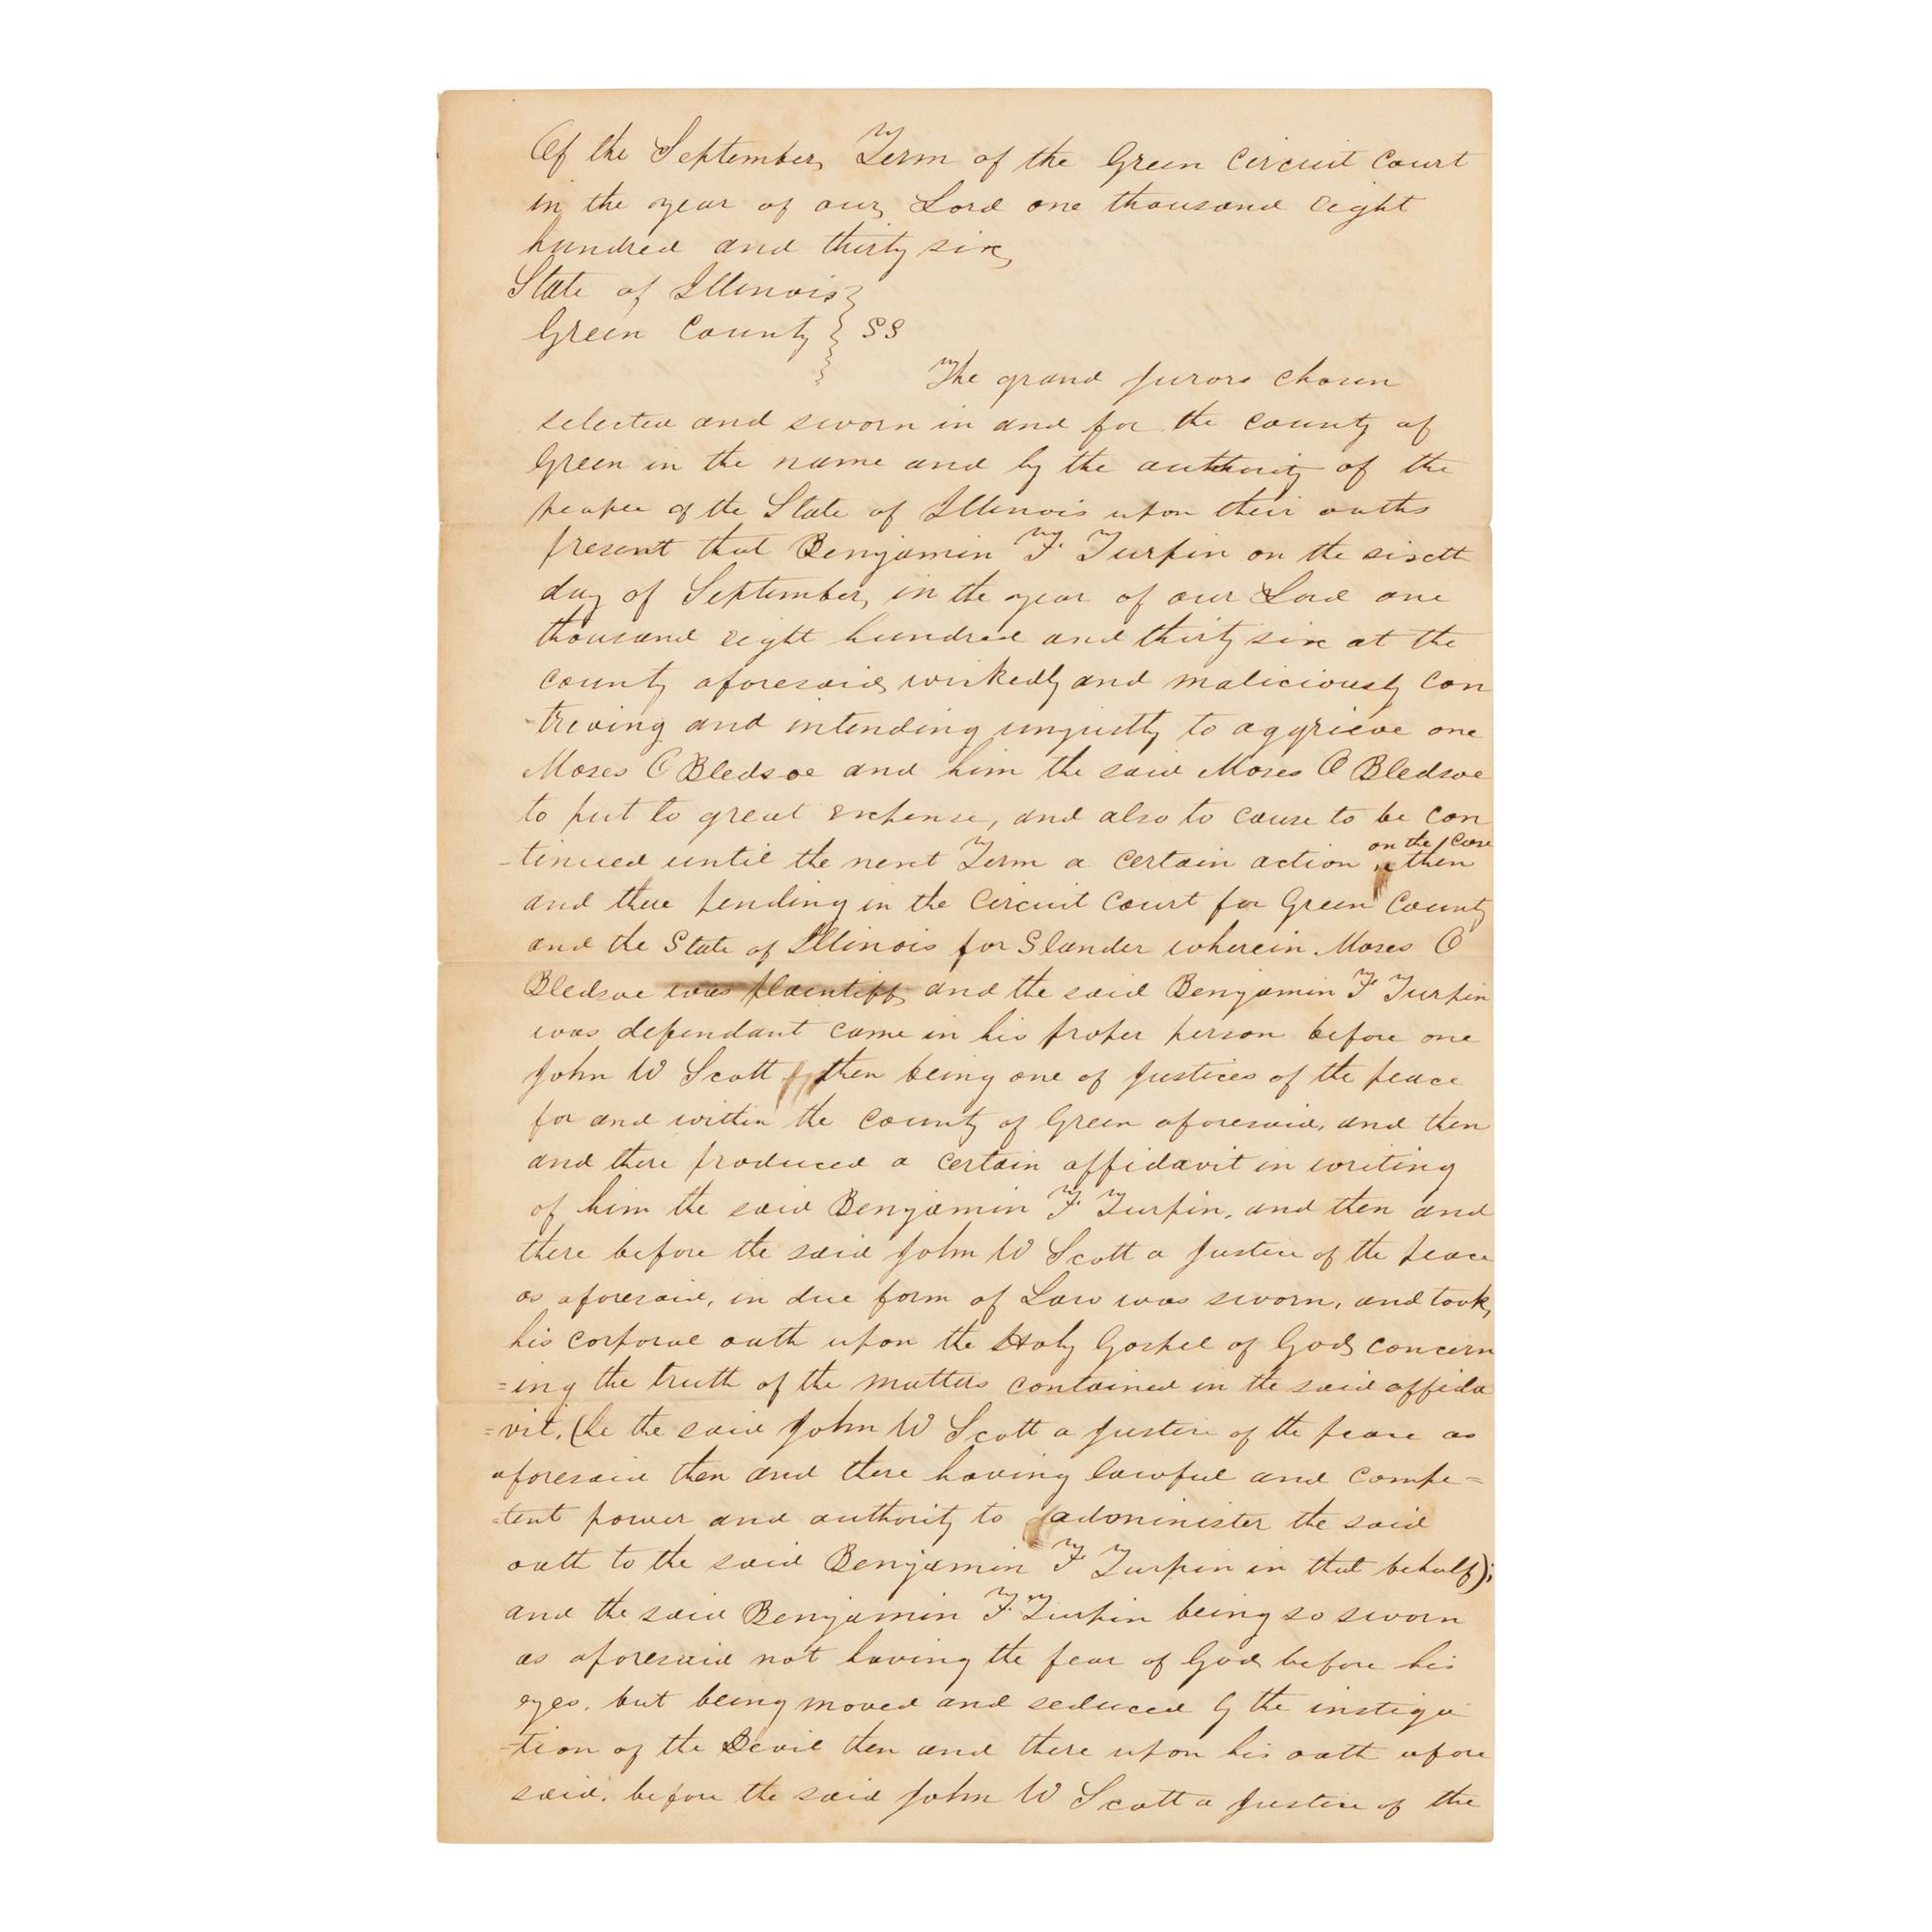 Of the September Term of the Green Circuit Court
in the year of our Lord one thousand eight
hundred and thirty six
State of Illinois }
Green County } SS
The grand jurors chosen
selected and sworn in and for the county of
Green in the name and by the authority of the
people of the State of Illinois upon their oaths
present that Benjamin F. Turpin on the sixth
day of September, in the year of our Lord one
thousand eight hundred and thirty six at the
county aforesaid wickedly and maliciously con
-triving and intending unjustly to aggrieve one
Moses O Bledsoe and him the said Moses O Bledsoe
to put to great expense, and also to cause to be con
on the case
-tinued until the next Term a certain action then
and there pending in the Circuit Court for Green County
and the State of Illinois for Slander wherein Moses O
Bledsoe was plaintiff and the said Benjamin F Turpin
was defendant came in his proper person before one
John W Scott then being one of Justices of the peace
for and within the county of Green aforesaid, and then
and there produced a certain affidavit in writing
of him the said Benjamin F. Turpin, and then and
there before the said John W Scott a Justice of the peace
as aforesaid, in due form of Law was sworn, and took
his corporal oath upon the Holy Gospel of God concern
=ing the truth of the matters contained in the said affida
=vit, (he the said John W Scott a Justice of the peace as
aforesaid then and there having lawful and compe=
=tent power and authority to administer the said
oath to the said Benjamin F Turpin in that behalf);
and the said Benjamin F. Turpin being so sworn
as aforesaid not having the fear of God before his
eyes, but being moved and seduced by the instiga
-tion of the Devil then and there upon his oath afore
said, before the said John W Scott a Justice of the